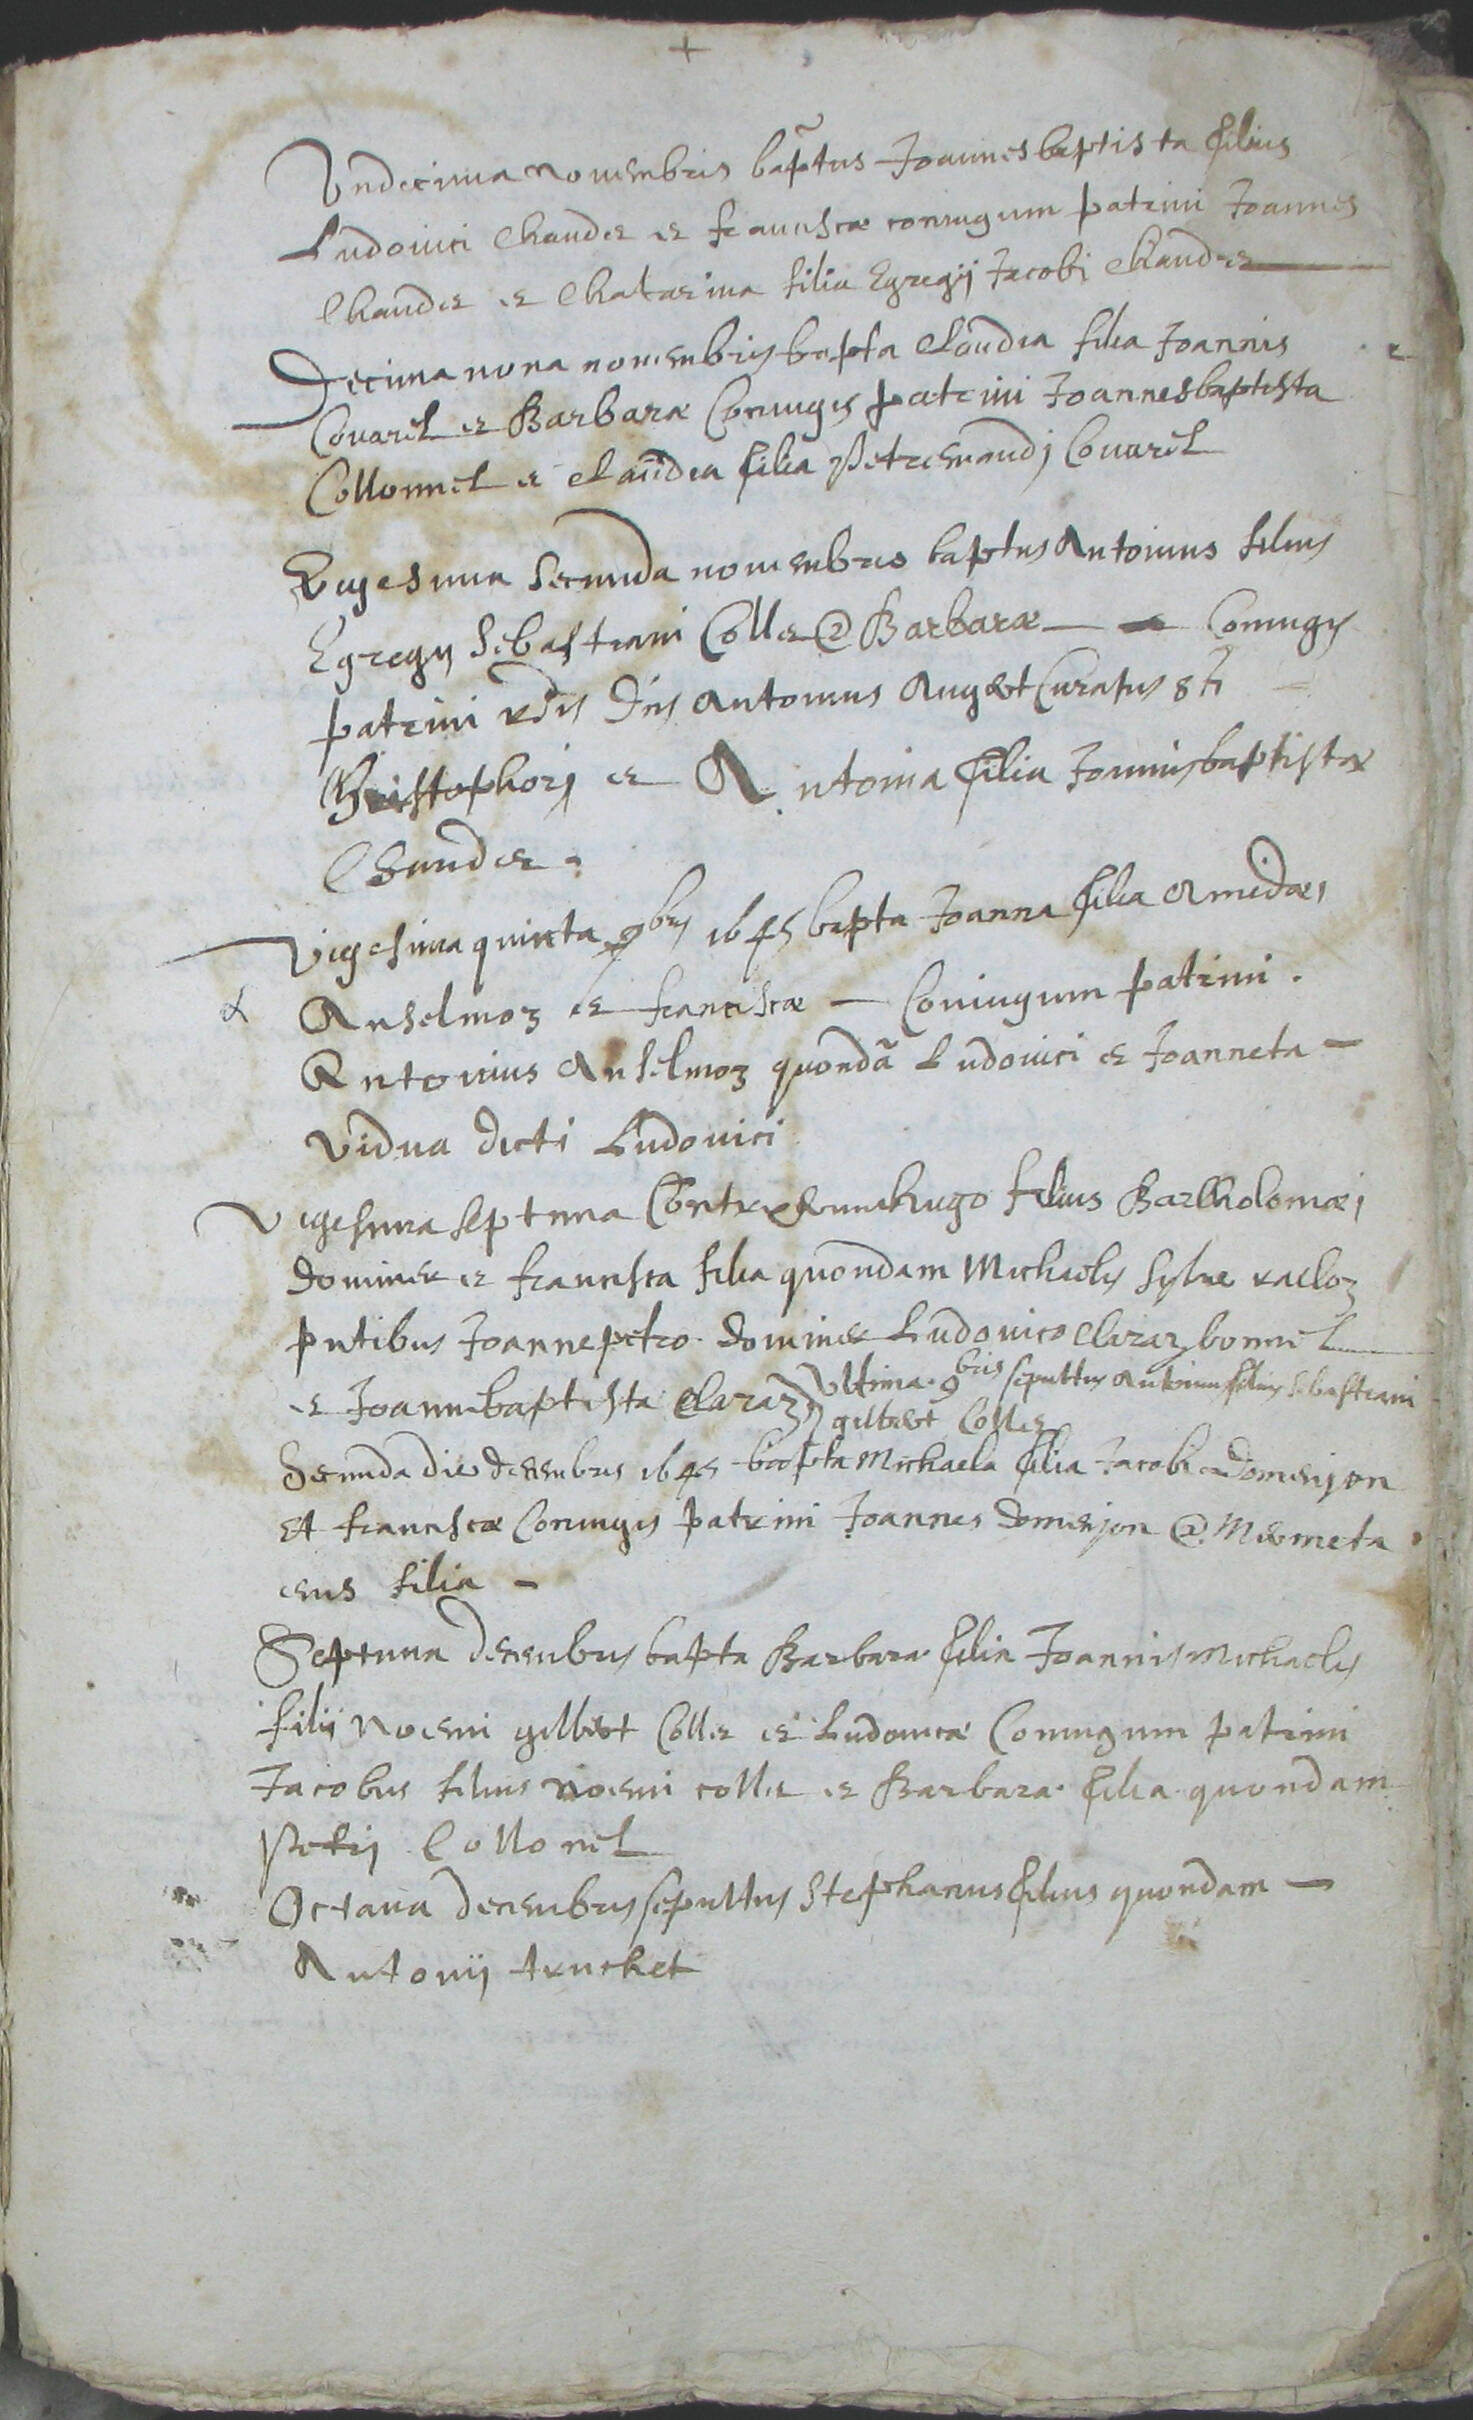 +
Undecima novembris bap̃tus Joannesbaptista filius
Ludovici Chaudet et franciscæ coniugum patrini Joannes
Chaudet et Chatarina filia Egregij Jacobi Chaudet
Decima nona novembris bapta Claudia filia Joannis
Couarel et Barbaræ Coniugis patrini Joannesbaptista
Collonnel et Claudia filia Petremandj Couarel
Vigesima secunda novembris baptus Antonius filius
Egregij Sebastiani Collet @ Barbaræ — Coniugis
patrini rdus Dns Antonius Auget Curatus sti
Christophorj et Antonia filia Joannisbaptistæ
Chaudet.
Vigesima quinta 9bris 1645 bapta Joanna filia Amedæi
Anselmoz et franciscæ — Coniugum patrini.
Antonius Anselmoz quondã Ludovici et Joanneta –
vidua dicti Ludovici
Vigesima septima Contrax hugo filius Bartholomæj
et francisca filia quondam Michaelis Sylve
pntibus Joannepetro Ludovico Claraz bonnel
et Joannebaptista Claraz ultima 9bris sepultus Antonius filius Sebastiani
gilbert Collet
Secunda die decembris 1645 bapta Michaela filia Jacobi Domenjon
et franciscæ Coniugis patrini Joannes domenjon @
eius filia –
Septima decembris bapta Barbara filia Joannis Michaelis
filij Noemi gilbert Collet et Ludovicæ Coniugum patrini
Jacobus filius Noemi collet et Barbara filia quondam
Petrj Collonel
Octava decembris sepultus Stephanus filius quondam –
Antonij truchet